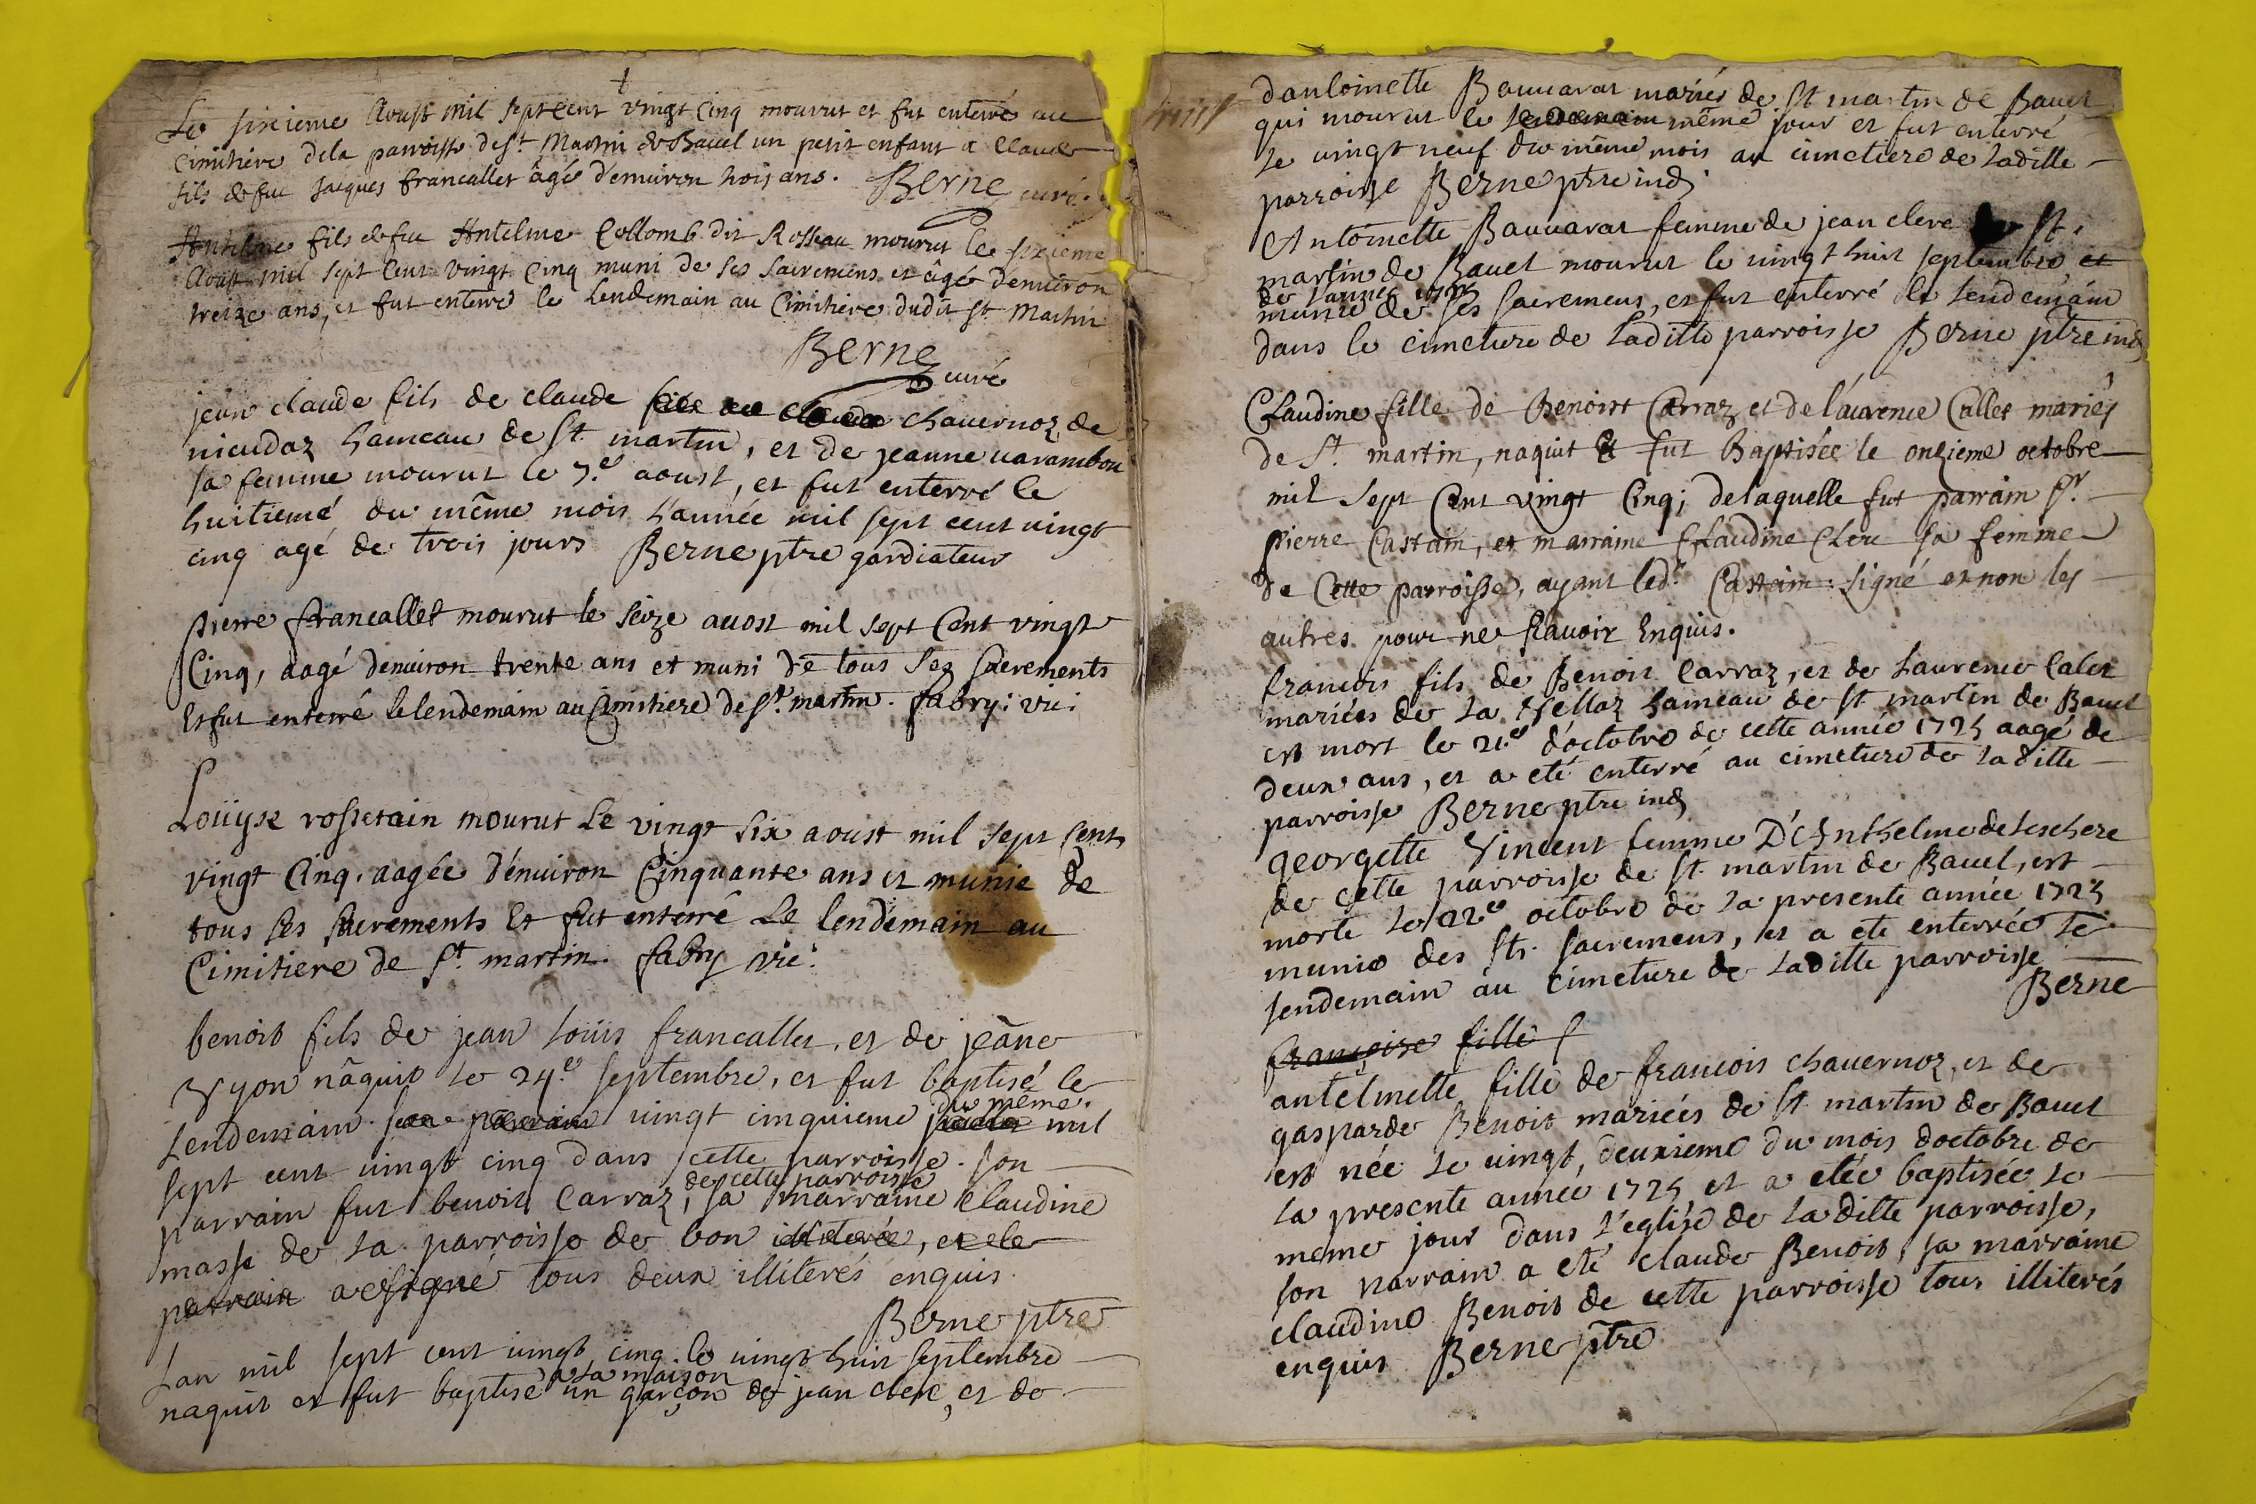 Le sixieme Aoust mil sept cent vingt cinq mourut et fut enterré au
cimitiere dela parroisse de St. Martin de Bavel un petit enfant a Claude
fils de feu Jacques francallet âgé d'environ trois ans. Berne curé.
Antelme fils de feu Antelme Collomb dit Rosseau mourut le sixieme
Aoust mil sept cent vingt cinq muni de ses sacremens et âgé denviron
treize ans, et fut enterré le lendemain au Cimitiere dudit St Martin
Berne curé
jean claude fils de claude chavernoz de
nieudaz hameau de St. martin, et de jeanne varambon
sa femme mourut le 7.e aoust, et fut enterré le
huitiemé du même mois l'année mil sept cent vingt
cinq agé de trois jours Berne ptre gardiateur
pierre francallet mourut le seize auost mil sept Cent vingt
Cinq, aagé denviron trente ans et muni de tous ses sacrements
Et fut enterré le lendemain au Cimitiere de St. martin. fabry: vic:
Loüyse rosserain mourut Le vingt six aoust mil sept Cent
vingt Cinq. aagée d'environ Cinquante ans et munie de
tous ses sacrements Et fut enterré Le lendemain au
Cimitiere de St. martin. fabry vic:
benoit fils de jean loüis francallet, et de jeâne
Vyon nâquit le 24.e septembre, et fut baptisé le
lendemain son parrain vingt cinquieme du même mil
sept cent vingt cinq dans cette parroisse. son
parrain fut benoit Carraz, de cette parroisse sa marraine Claudine
masse de la parroisse de bon illiterée, et le
parrain a signé tous deux illiterés enquis.
Berne ptre
Lan mil sept cent vingt cinq le vingt huit septembre
naquit et fut baptisé a la maison un garçon de jean clerc, et de
dantoinette Bauvarat mariés de St martin de Bavel
qui mourut le lendemain même jour et fut enterré
le vingt neuf du même mois au cimetiere de laditte
parroisse Berne ptre ind
Antoinette Bauvarat femme de jean clerc de St.
martin de Bavel mourut le vingt huit septembre et
de l'année 1725
munie de ses sacremens, et fut enterré le lendemain
dans le cimetiere de laditte parroisse Berne ptre ind
Claudine fille de Benoist Carraz et de laurence Callet mariés
de St. martin, naquit Et fut Baptisée le onzieme octobre
mil sept Cent vingt Cinq; delaquelle fut parrain Sr.
pierre Castain, et marraine Claudine Clerc sa femme
de Cette parroisse, ayant led.t Castain signé et non les
autres pour ne sçavoir Enquis.
francois fils de Benoit Carraz, et de Laurence Calet
mariées de la hameau de St martin de Bavel
est mort le 21.e d'octobre de cette année 1725 aagé de
deux ans, et a eté enterré au cimetiere de laditte
parroisse Berne ptre ind
georgette Vincent femme D'Anthelme de leschere
de cette parroisse de St. martin de Bavel, est
morte le 22e octobre de la presente année 1725
munie des Sts. sacremens, et a ete enterrée le
lendemain au cimetiere de laditte parroisse
Berne
françoise fille
antelmette fille de francois chavernoz, et de
gasparde Benoit mariées de St. martin de Bavel
est née le vingt, deuxieme du mois doctobre de
la presente année 1725 et a etée baptisée le
meme jour dans l'eglise de laditte parroisse,
son parrain a eté claude Benoit, sa marraine
claudine Benoit de cette parroisse tous illiterés
enquis Berne ptre